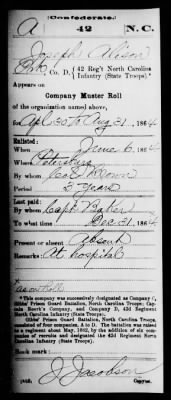 (Confederate.)
A 42 N.C.
Joseph Alison
Co. D., 42 Reg't North Carolina Infantry (State Troops).*
Appears on
Company Muster Roll
of the organization named above,
for Apl 30 to Aug 31, 1864.
Enlisted:
When June 6, 1864
Where Petersburg
By whom Brown
Period 3 years
Last paid:
By whom Capt. Baker
To what time Dec 31, 186
Present or absent Absent
Remarks: At hospital
as on roll
*This company was successively designated as Company C, Gibbs' Prison Guard Battalion, North Carolina Troops; Captain Company, and Company D, 42d Regiment North Carolina Infantry (State Troops).
Gibbs' Prison Guard Battalion, North Carolina Troops, consisted of four companies, A to D. The battalion was raised to a regiment about May, 1862, by the addition of six companies of recruits and designated the 42d Regiment North Carolina Infantry (State Troops).
Book mark:
J Jacobson
Copyist.